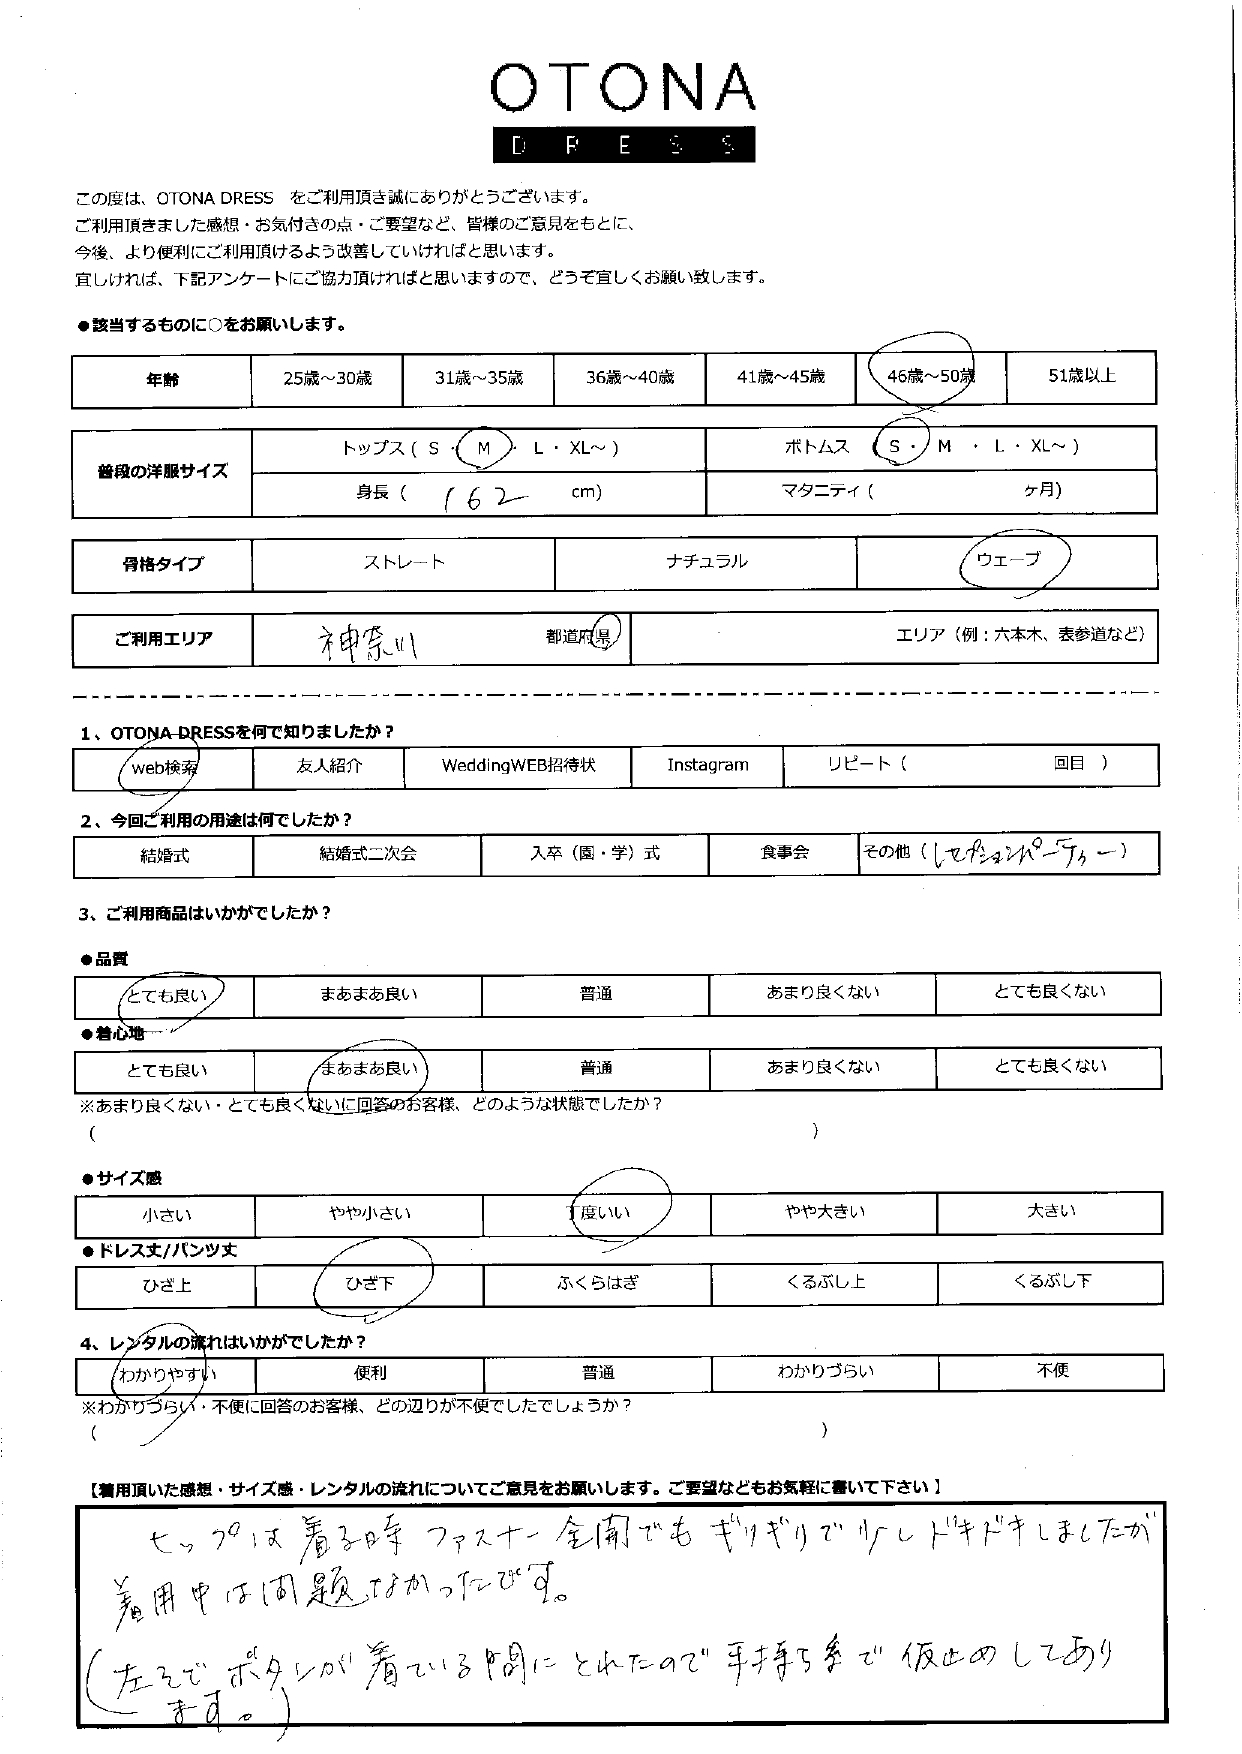 OTONA
DRESS
この度は、OTONA DRESS をご利用頂き誠にありがとうございます。
ご利用頂きました感想・お気付きの点・ご要望など、皆様のご意見をもとに、
今後、より便利にご利用頂けるよう改善していければと思います。
宜しければ、下記アンケートにご協力頂ければと思いますので、どうぞ宜しくお願い致します。
●該当するものに○をお願いします。
年齢 25歳～30歳 31歳～35歳 36歳～40歳 41歳～45歳 46歳～50歳 51歳以上
普段の洋服サイズ トップス ( S ・ M ・ L ・ XL～ ) ボトムス ( S ・ M ・ L ・ XL～ )
身長 ( 162 cm) マタニティ ( ヶ月)
骨格タイプ ストレート ナチュラル ウェーブ
ご利用エリア 神奈川 都道府県 エリア（例：六本木、表参道など）
1、OTONA DRESSを何で知りましたか？
web検索 友人紹介 WeddingWEB招待状 Instagram リピート（ 回目 ）
2、今回ご利用の用途は何でしたか？
結婚式 結婚式二次会 入卒（園・学）式 食事会 その他（レセプションパーティー）
3、ご利用商品はいかがでしたか？
●品質
とても良い まあまあ良い 普通 あまり良くない とても良くない
●着心地
とても良い まあまあ良い 普通 あまり良くない とても良くない
※あまり良くない・とても良くないに回答のお客様、どのような状態でしたか？
( )
●サイズ感
小さい やや小さい 丁度いい やや大きい 大きい
●ドレス丈/パンツ丈
ひざ上 ひざ下 ふくらはぎ くるぶし上 くるぶし下
4、レンタルの流れはいかがでしたか？
わかりやすい 便利 普通 わかりづらい 不便
※わかりづらい・不便に回答のお客様、どの辺りが不便でしたでしょうか？
( )
【着用頂いた感想・サイズ感・レンタルの流れについてご意見をお願いします。ご要望などもお気軽に書いて下さい】
ヒップは着る時ファスナー全開でもギリギリで少しドキドキしましたが
着用中は問題なかったです。
(左そでボタンが着ている間にとれたので手持ち糸で仮止めしてあり
ます。)